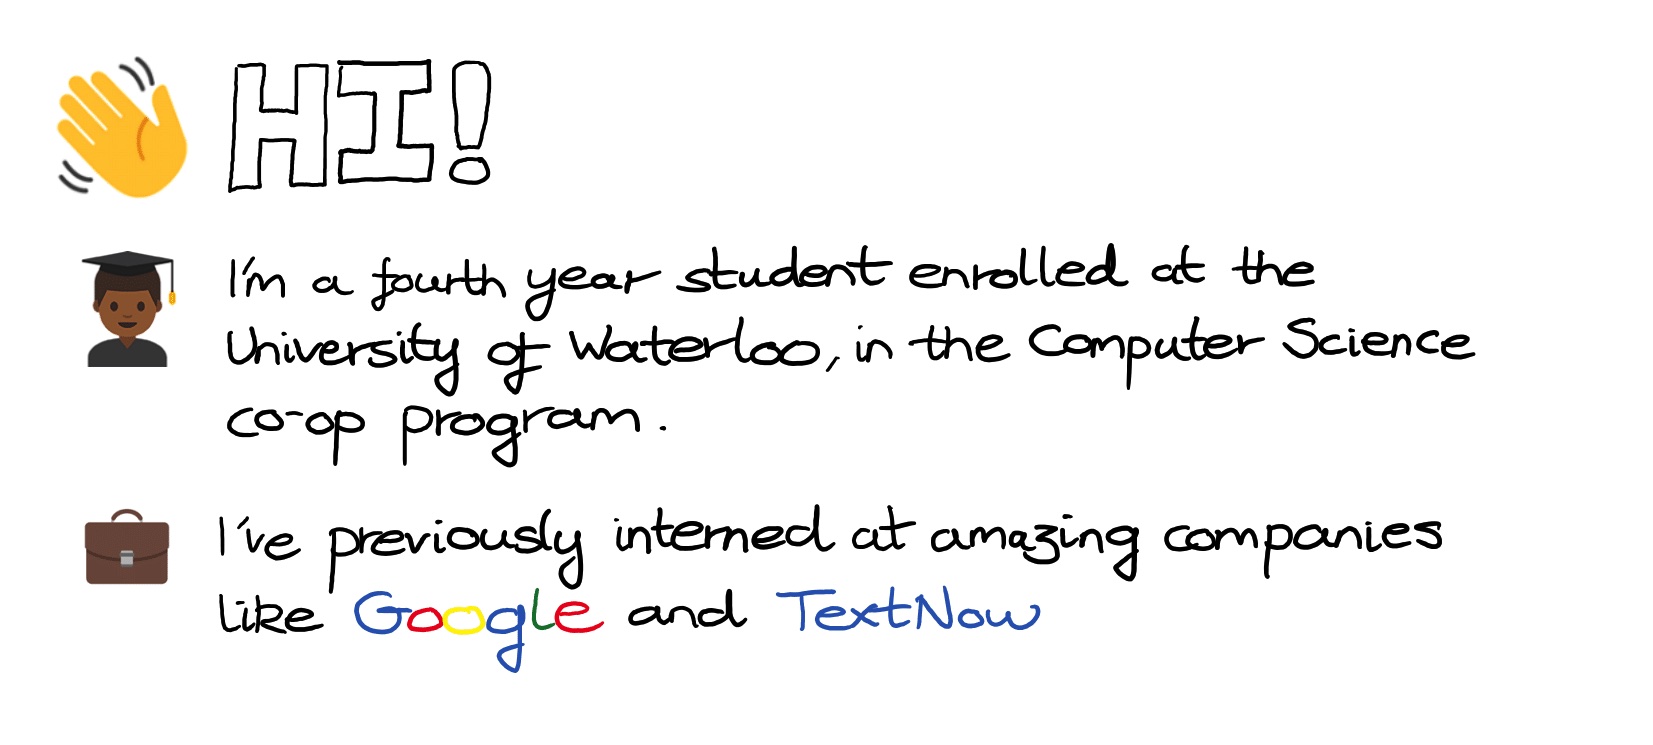 HI!
I'm a fourth year student enrolled at the
University of Waterloo, in the Computer Science
co-op program.
I've previously interned at amazing companies
like Google and TextNow